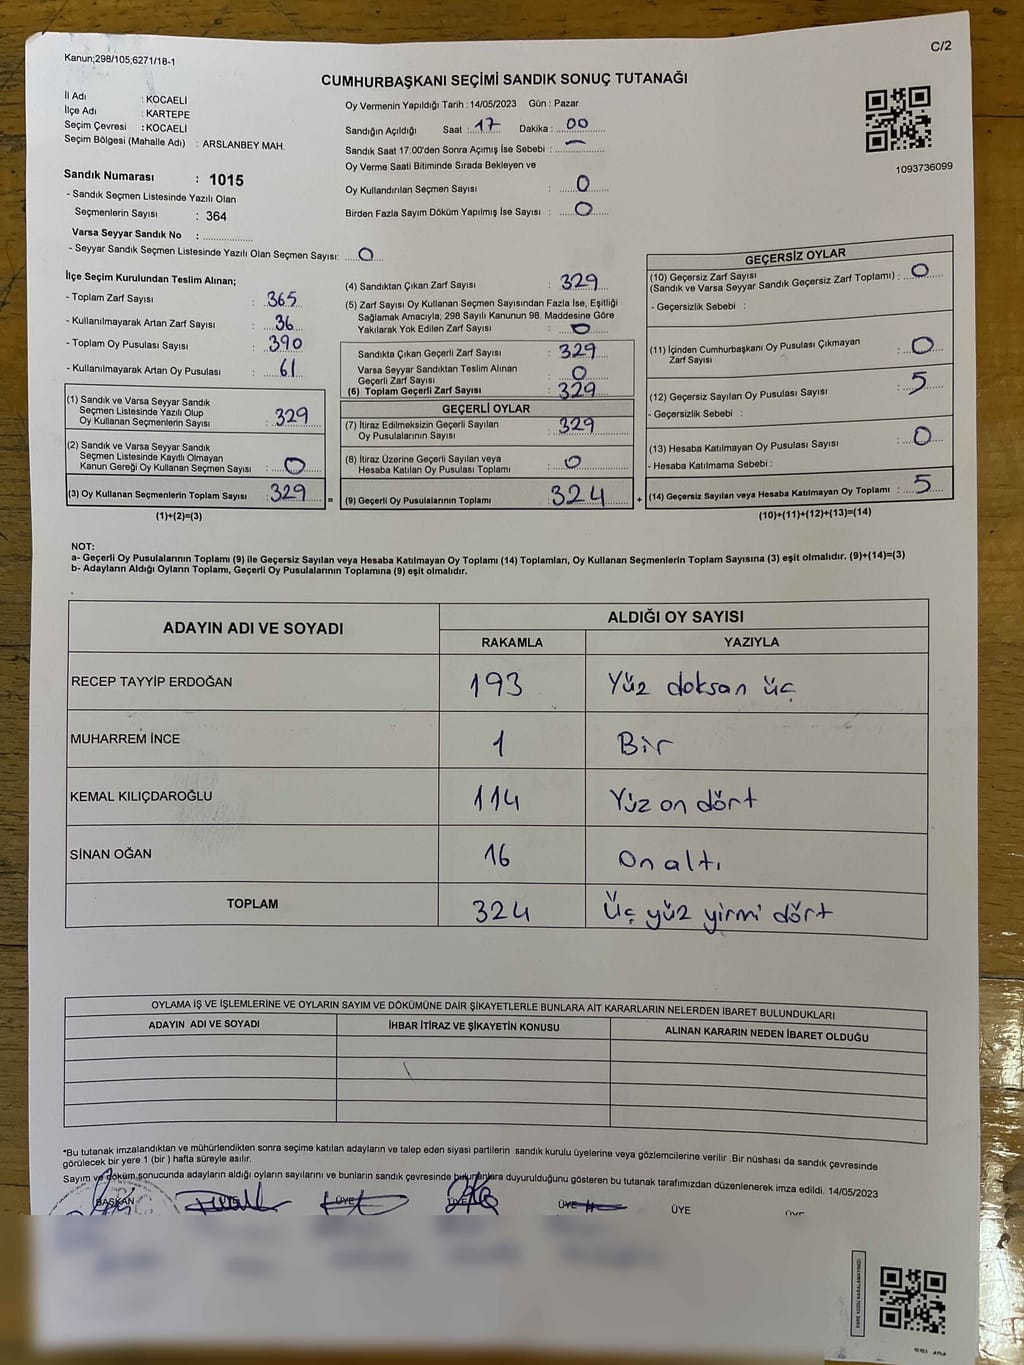 Kanun;298/105,6271/18-1
C/2
CUMHURBAŞKANI SEÇİMİ SANDIK SONUÇ TUTANAĞI
İl Adı : KOCAELİ
İlçe Adı : KARTEPE
Seçim Çevresi : KOCAELİ
Seçim Bölgesi (Mahalle Adı) : ARSLANBEY MAH.
Sandık Numarası : 1015
- Sandık Seçmen Listesinde Yazılı Olan
Seçmenlerin Sayısı : 364
Varsa Seyyar Sandık No :
- Seyyar Sandık Seçmen Listesinde Yazılı Olan Seçmen Sayısı: 0
Oy Vermenin Yapıldığı Tarih : 14/05/2023 Gün : Pazar
Sandığın Açıldığı Saat : 17 Dakika : 00
Sandık Saat 17:00'den Sonra Açımış İse Sebebi : —
Oy Verme Saati Bitiminde Sırada Bekleyen ve
Oy Kullandırılan Seçmen Sayısı : 0
Birden Fazla Sayım Döküm Yapılmış İse Sayısı : 0
1093736099
İlçe Seçim Kurulundan Teslim Alınan;
- Toplam Zarf Sayısı : 365
- Kullanılmayarak Artan Zarf Sayısı : 36
- Toplam Oy Pusulası Sayısı : 390
- Kullanılmayarak Artan Oy Pusulası : 61
(1) Sandık ve Varsa Seyyar Sandık
Seçmen Listesinde Yazılı Olup
Oy Kullanan Seçmenlerin Sayısı : 329
(2) Sandık ve Varsa Seyyar Sandık
Seçmen Listesinde Kayıtlı Olmayan
Kanun Gereği Oy Kullanan Seçmen Sayısı : 0
(3) Oy Kullanan Seçmenlerin Toplam Sayısı : 329 =
(1)+(2)=(3)
(4) Sandıktan Çıkan Zarf Sayısı : 329
(5) Zarf Sayısı Oy Kullanan Seçmen Sayısından Fazla İse, Eşitliği
Sağlamak Amacıyla; 298 Sayılı Kanunun 98. Maddesine Göre
Yakılarak Yok Edilen Zarf Sayısı : 0
Sandıkta Çıkan Geçerli Zarf Sayısı : 329
Varsa Seyyar Sandıktan Teslim Alınan
Geçerli Zarf Sayısı : 0
(6) Toplam Geçerli Zarf Sayısı : 329
GEÇERLİ OYLAR
(7) İtiraz Edilmeksizin Geçerli Sayılan
Oy Pusulalarının Sayısı : 329
(8) İtiraz Üzerine Geçerli Sayılan veya
Hesaba Katılan Oy Pusulası Toplamı : 0
(9) Geçerli Oy Pusulalarının Toplamı : 324 +
GEÇERSİZ OYLAR
(10) Geçersiz Zarf Sayısı
(Sandık ve Varsa Seyyar Sandık Geçersiz Zarf Toplamı) : 0
- Geçersizlik Sebebi :
(11) İçinden Cumhurbaşkanı Oy Pusulası Çıkmayan
Zarf Sayısı : 0
(12) Geçersiz Sayılan Oy Pusulası Sayısı : 5
- Geçersizlik Sebebi :
(13) Hesaba Katılmayan Oy Pusulası Sayısı : 0
- Hesaba Katılmama Sebebi :
(14) Geçersiz Sayılan veya Hesaba Katılmayan Oy Toplamı : 5
(10)+(11)+(12)+(13)=(14)
NOT:
a- Geçerli Oy Pusulalarının Toplamı (9) ile Geçersiz Sayılan veya Hesaba Katılmayan Oy Toplamı (14) Toplamları, Oy Kullanan Seçmenlerin Toplam Sayısına (3) eşit olmalıdır. (9)+(14)=(3)
b- Adayların Aldığı Oyların Toplamı, Geçerli Oy Pusulalarının Toplamına (9) eşit olmalıdır.
ADAYIN ADI VE SOYADI
ALDIĞI OY SAYISI
RAKAMLA YAZIYLA
RECEP TAYYİP ERDOĞAN 193 Yüz doksan üç
MUHARREM İNCE 1 Bir
KEMAL KILIÇDAROĞLU 114 Yüz on dört
SİNAN OĞAN 16 On altı
TOPLAM 324 Üç yüz yirmi dört
OYLAMA İŞ VE İŞLEMLERİNE VE OYLARIN SAYIM VE DÖKÜMÜNE DAİR ŞİKAYETLERLE BUNLARA AİT KARARLARIN NELERDEN İBARET BULUNDUKLARI
ADAYIN ADI VE SOYADI İHBAR İTİRAZ VE ŞİKAYETİN KONUSU ALINAN KARARIN NEDEN İBARET OLDUĞU
*Bu tutanak imzalandıktan ve mühürlendikten sonra seçime katılan adayların ve talep eden siyasi partilerin sandık kurulu üyelerine veya gözlemcilerine verilir .Bir nüshası da sandık çevresinde
görülecek bir yere 1 (bir ) hafta süreyle asılır.
Sayım ve döküm sonucunda adayların aldığı oyların sayılarını ve bunların sandık çevresinde bulunanlara duyurulduğunu gösteren bu tutanak tarafımızdan düzenlenerek imza edildi. 14/05/2023
BAŞKAN ÜYE ÜYE ÜYE ÜYE ÜYE ÜYE